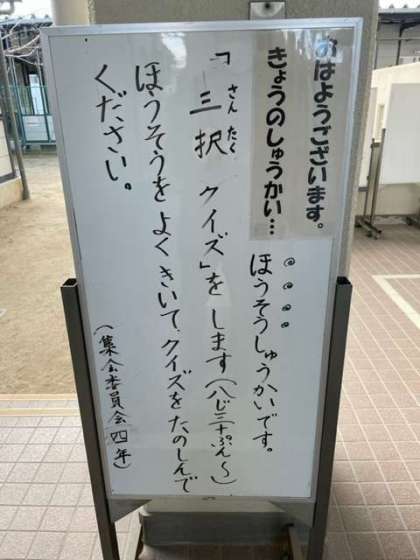 おはようございます。
きょうのしゅうかい…
ほうそうしゅうかいです。
「三択 クイズ」をします(八じ三十ぷん〜)
さん たく
ほうそうをよくきいて、クイズをたのしんで
ください。
(集会委員会四年)